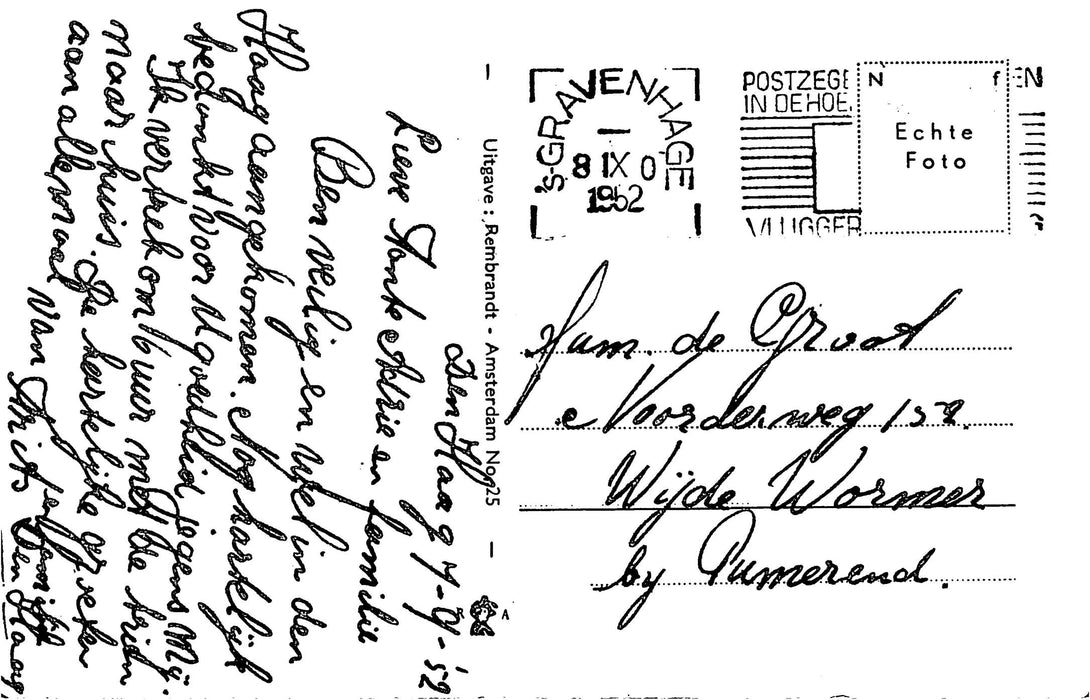 Den Haag 7-9-'52
Lieve Tante Adrie en familie
Ben veilig en wel in den
Haag aangekomen. Nog hartelijk
bedankt voor U goedheid Tegens Mij.
Ik vertrek om uur met de trien
naar huis. De hartelijke groeten
aan allemaal
van Frits
Den Haag
Uitgave: Rembrandt - Amsterdam No. 25
A
's-GRAVENHAGE
8 IX 0
1952
POSTZEGE EN
IN DE HOE
VLUGGER
N f
Echte
Foto
Fam. de Groot
Noorderweg 152.
Wijde Wormer
by Purmerend.